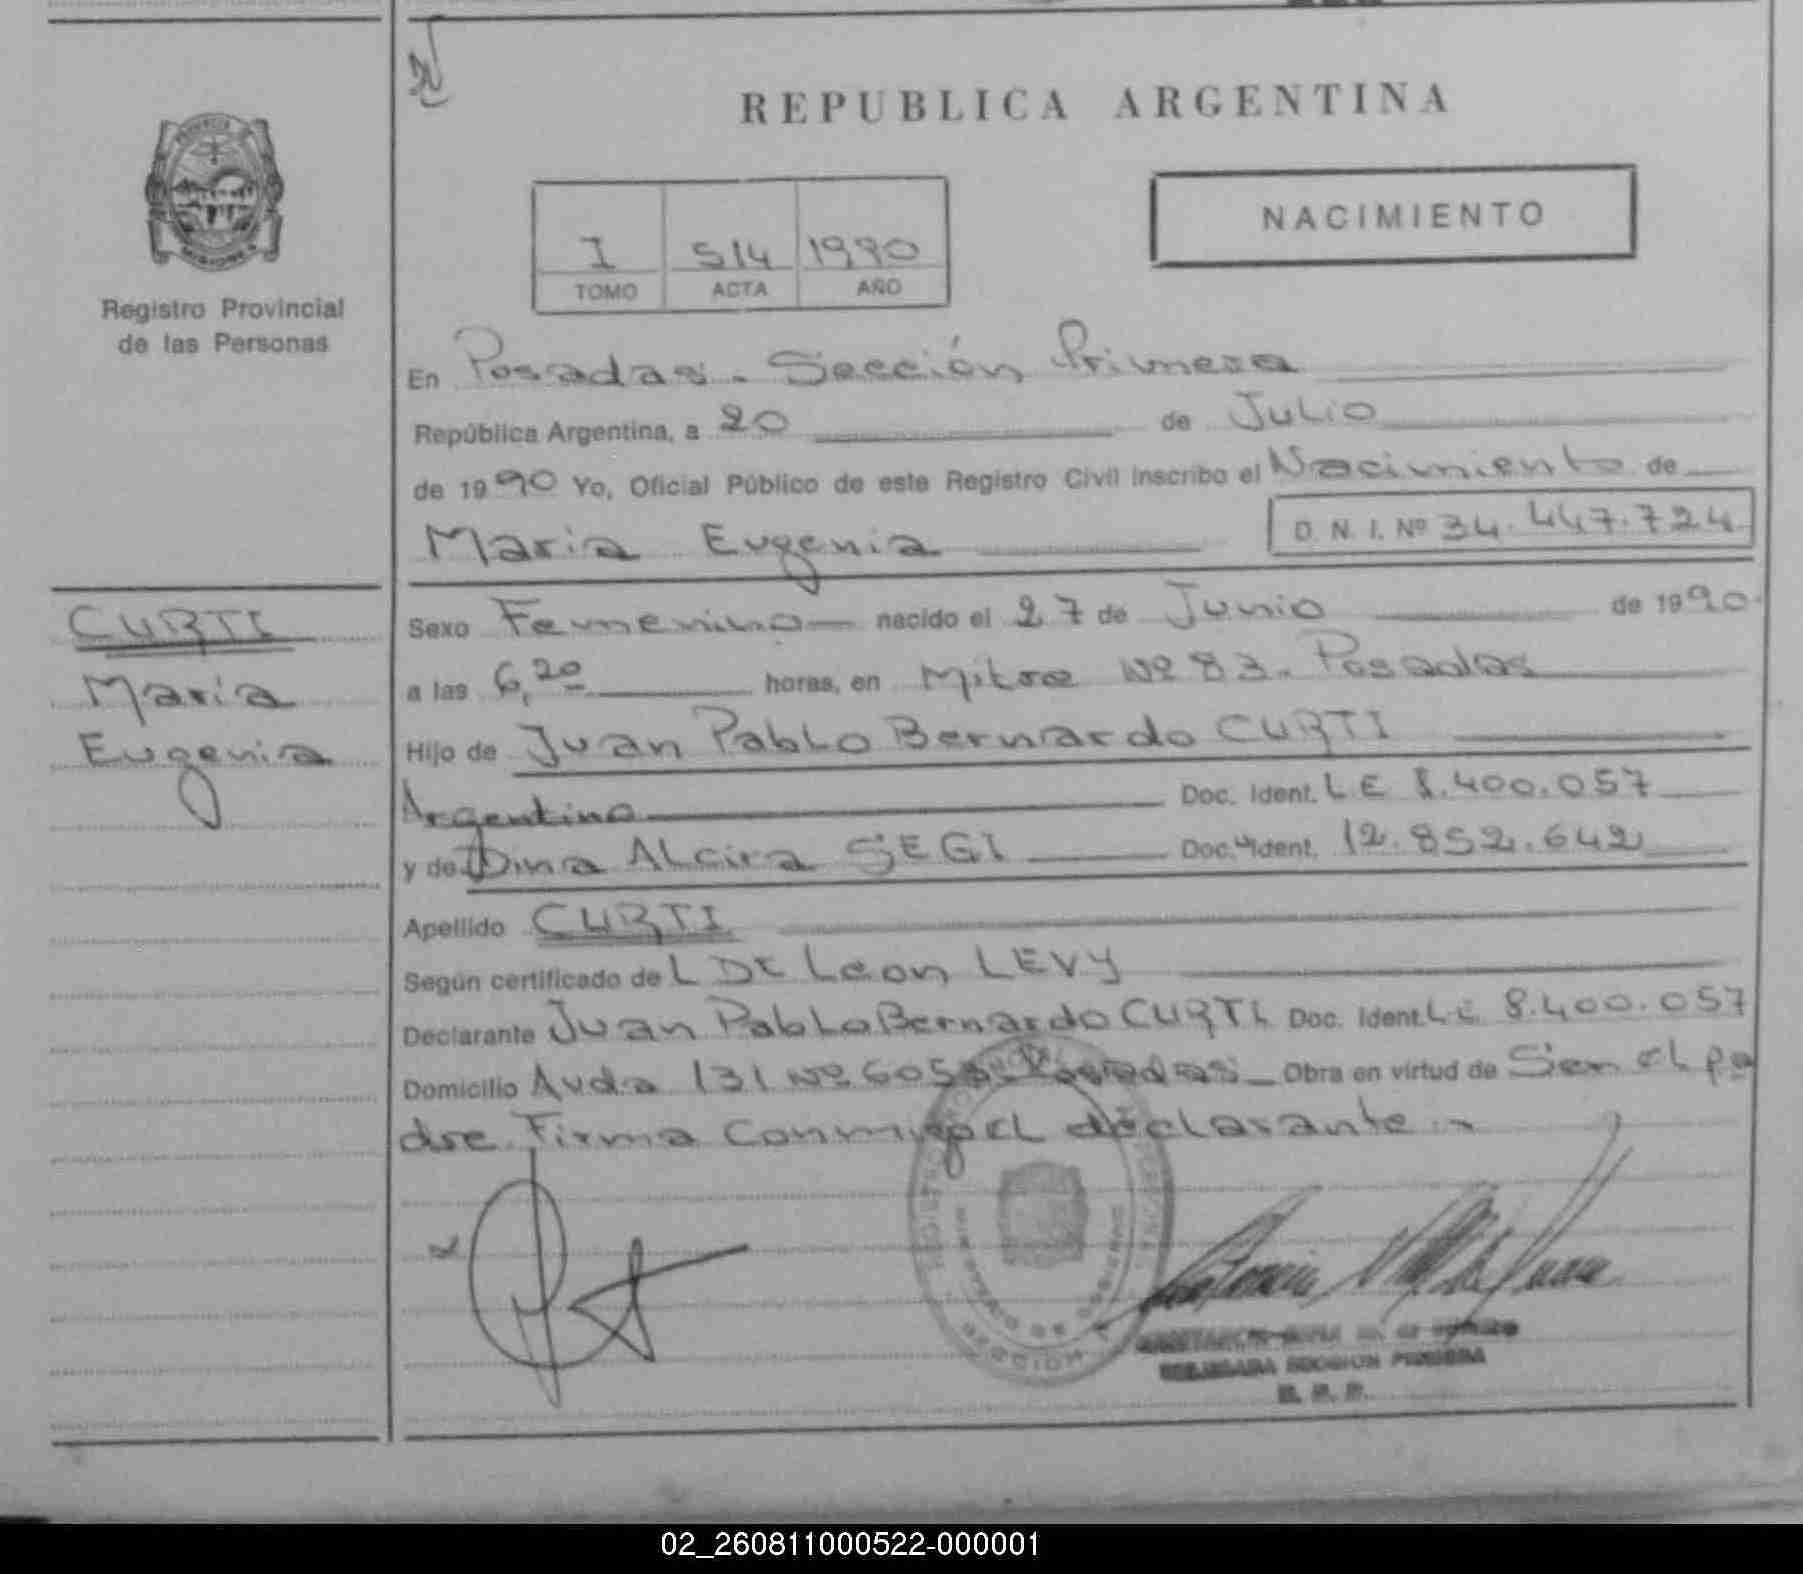 REPUBLICA ARGENTINA
NACIMIENTO
I 514 1990
TOMO ACTA AÑO
Registro Provincial
de las Personas
En Posadas - Sección Primera
República Argentina, a 20 de Julio
de 1990 Yo, Oficial Público de este Registro Civil inscribo el Nacimiento de
Maria Eugenia D. N. I. Nº 34.447.724
CURTI
María
Eugenia
Sexo Femenino nacido el 27 de Junio de 1990
a las 6,20 horas, en Mitre Nº 83 - Posadas
Hijo de Juan Pablo Bernardo CURTI
Argentino Doc. Ident. L E 8.400.057
y de Dina Alcira SEGI Doc. Ident. 12.852.642
Apellido CURTI
Según certificado de L Dr Leon LEVY
Declarante Juan Pablo Bernardo CURTI Doc. Ident. L E 8.400.057
Domicilio Avda 131 Nº Posadas Obra en virtud de Ser el pa
dre. Firma Conmigo el declarante
SECCION PRIMERA
R. P. P.
02_260811000522-000001